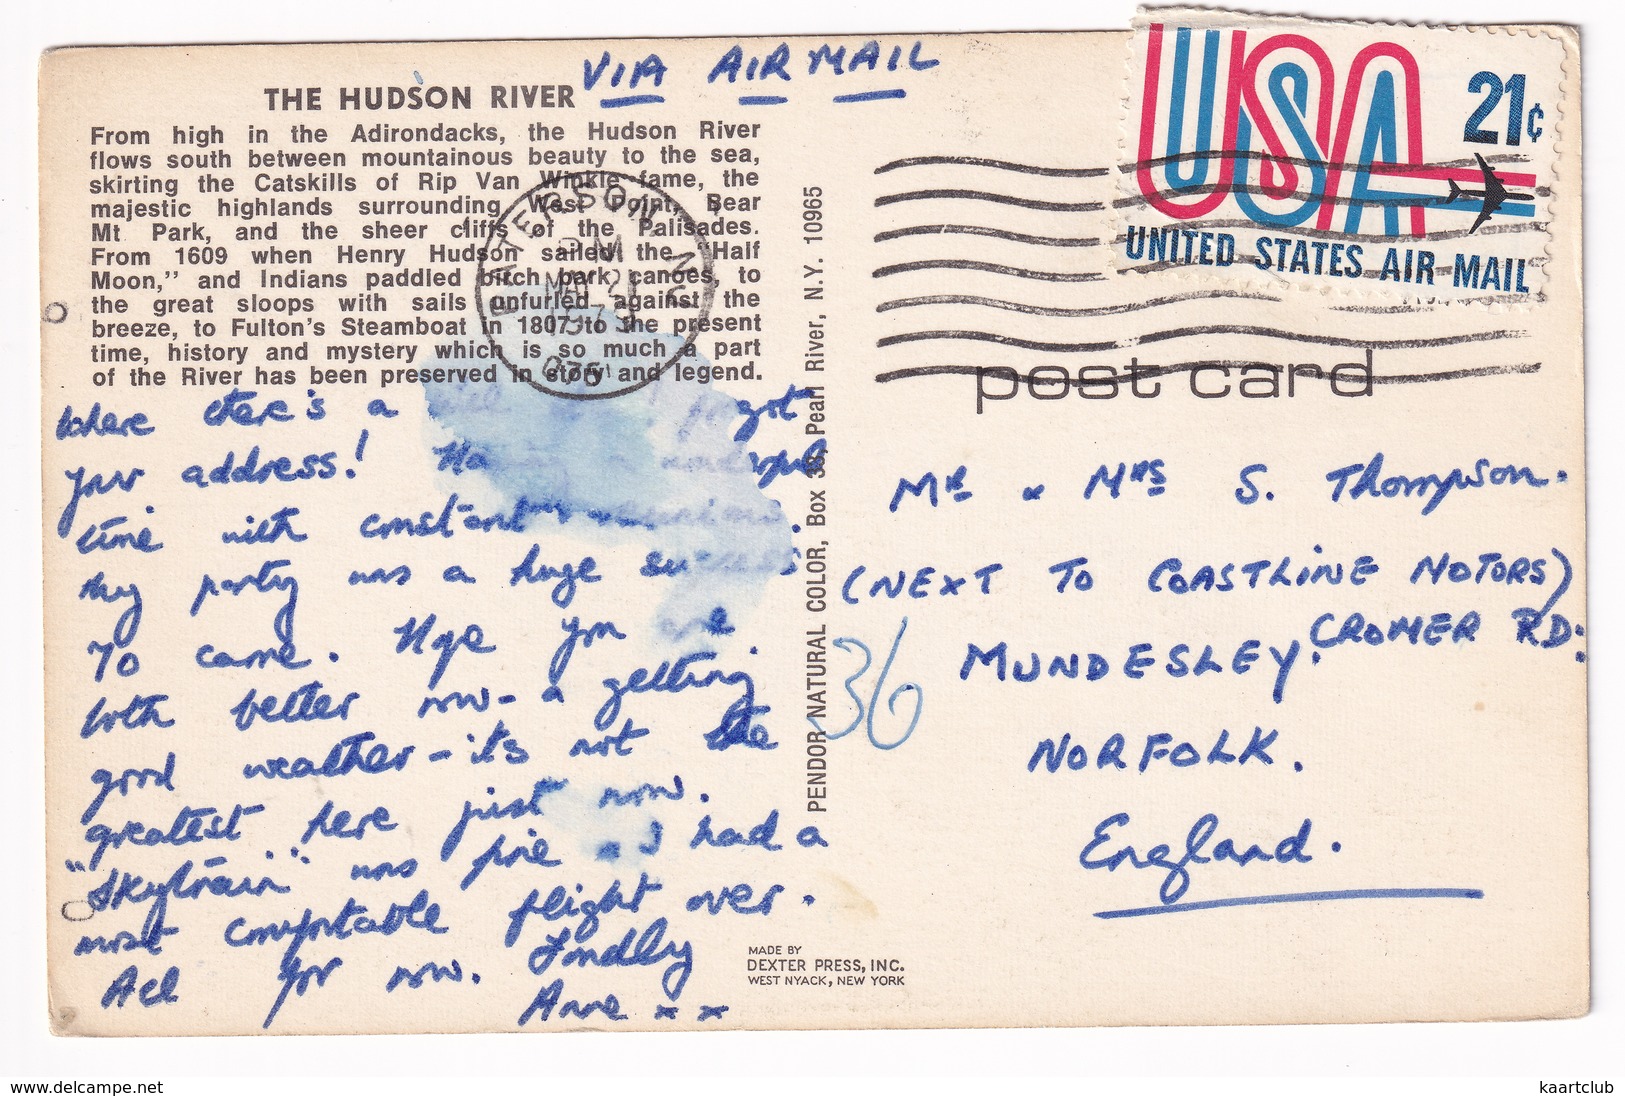 VIA AIR MAIL
THE HUDSON RIVER
From high in the Adirondacks, the Hudson River
flows south between mountainous beauty to the sea,
skirting the Catskills of Rip Van Winkle fame, the
majestic highlands surrounding West Point, Bear
Mt Park, and the sheer cliffs of the Palisades.
From 1609 when Henry Hudson sailed the "Half
Moon," and Indians paddled birch bark canoes, to
the great sloops with sails unfurled against the
breeze, to Fulton's Steamboat in 1807 to the present
time, history and mystery which is so much a part
of the River has been preserved in story and legend.
Where there's a
your address!
time with constant
My party was a huge success
70 came. Hope you are
both better now - a getting
good weather - it's not the
greatest here just now.
"Skytrain" was fine - I had a
most comfortable flight over.
All for now. Fondly
Anne x x
PATERSON NJ
PM
075
PENDOR NATURAL COLOR, Box 38, Pearl River, N.Y. 10965
MADE BY
DEXTER PRESS, INC.
WEST NYACK, NEW YORK
USA
21¢
UNITED STATES AIR MAIL
post card
Mr & Mrs S. Thompson.
(NEXT TO COASTLINE MOTORS)
CROMER RD:
MUNDESLEY.
NORFOLK.
England.
36
www.delcampe.net
kaartclub